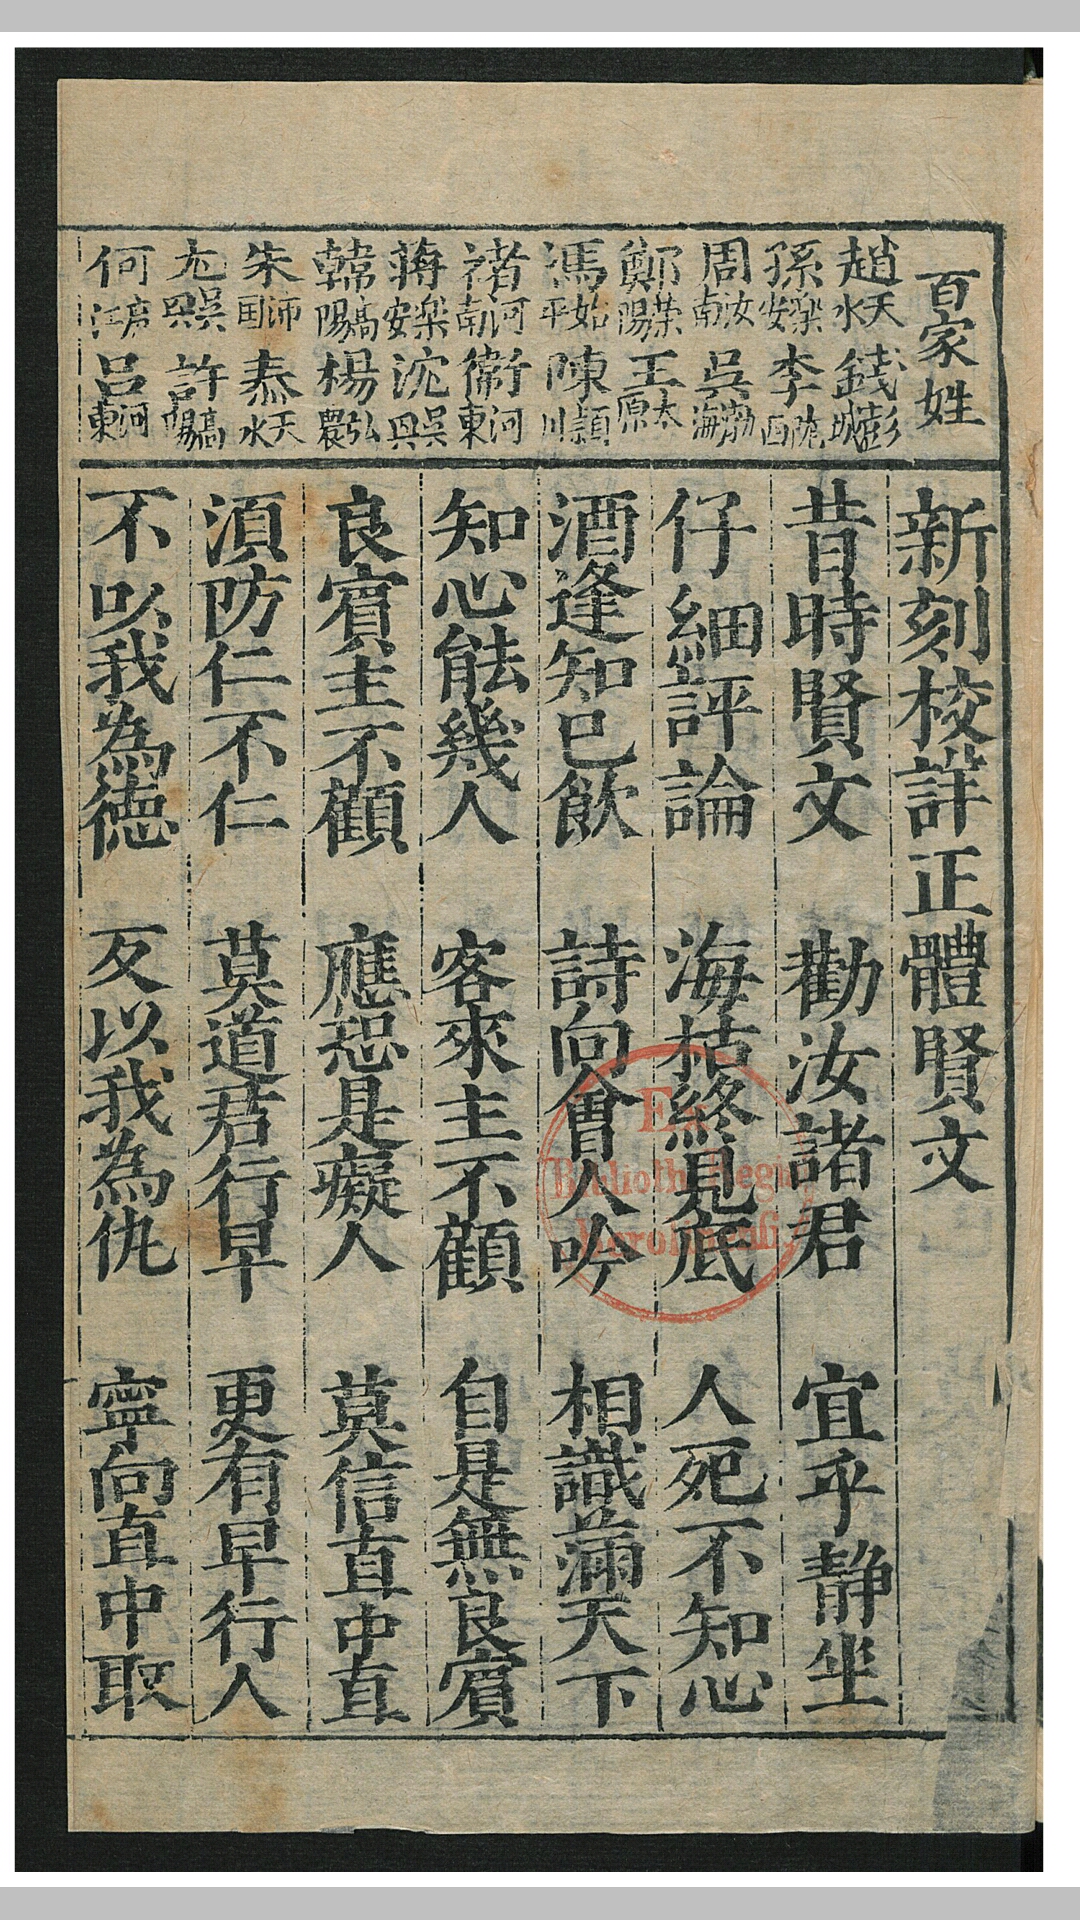 百家姓
趙天水 錢彭城
孫樂安 李隴西
周汝南 吳渤海
鄭荣陽 王太原
馮始平 陳頴川
禇河南 衛河東
蔣樂安 沈吳興
韓高陽 楊弘農
朱沛国 秦天水
尤吳興 許高陽
何庐江 吕河東
新刻校詳正體賢文
昔時賢文 勸汝諸君 宜乎静坐
仔細評論 海枯終見底 人死不知心
酒逢知已飲 詩向會人吟 相識滿天下
知心能幾人 客來主不顧 自是無良賓
良賓主不顧 應恐是癡人 莫信直中直
須防仁不仁 莫道君行早 更有早行人
不以我為德 反以我為仇 寧向直中取
Ex
Biblioth. Regia
Berolinensi.